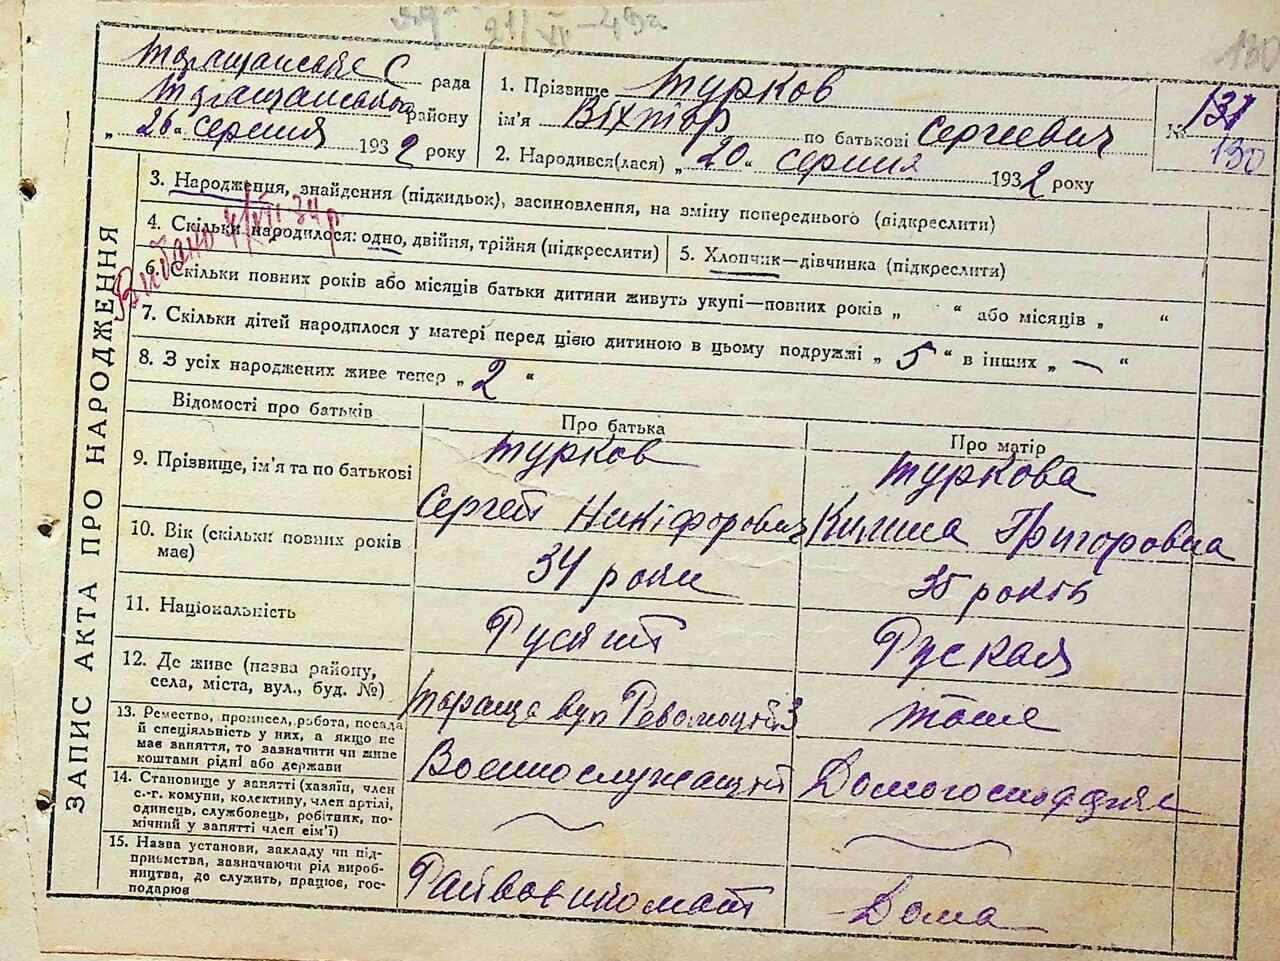 21/VI – 43р
130
Таращанське С рада
Таращанського району
„ 26 " серпня 1932 року
1. Прізвище Турков
ім'я Віхтор по батькові Сергиевич
2. Народився(лася) „ 20 " серпня 1932 року
№ 131
130
3. Народження, знайдення (підкидьок), засиновлення, на зміну попереднього (підкреслити)
Видано 4/VIII 34 р
4. Скільки народилося: одно, двійня, трійня (підкреслити)
5. Хлопчик—дівчинка (підкреслити)
6. Скільки повних років або місяців батьки дитини живуть укупі—повних років „ " або місяців „ "
7. Скільки дітей народилося у матері перед цією дитиною в цьому подружжі „ 5 " в інших „ — "
8. З усіх народжених живе тепер „ 2 "
ЗАПИС АКТА ПРО НАРОДЖЕННЯ
Відомості про батьків
Про батька
Про матір
9. Прізвище, ім'я та по батькові
Турков
Сергей Никіфорович
Туркова
Килина Григоровна
10. Вік (скільки повних років має)
34 роки
35 років
11. Національність
Русский
Руская
12. Де живе (назва району,
села, міста, вул., буд. №)
Тараща вул Революції 3
тоже
13. Ремество, промисел, робота, посада
й спеціяльність у них, а якщо не
має заняття, то зазначити чи живе
коштами рідні або держави
Военнослужащий
Домогосподдиня
14. Становище у занятті (хазяїн, член
с.-г. комуни, колективу, член артілі,
одинець, службовець, робітник, по-
мічний у занятті член сім'ї)
15. Назва установи, закладу чи під-
приємства, зазначаючи рід вироб-
ництва, де служить, працює, гос-
подарює
Райвоенкомат
Дома